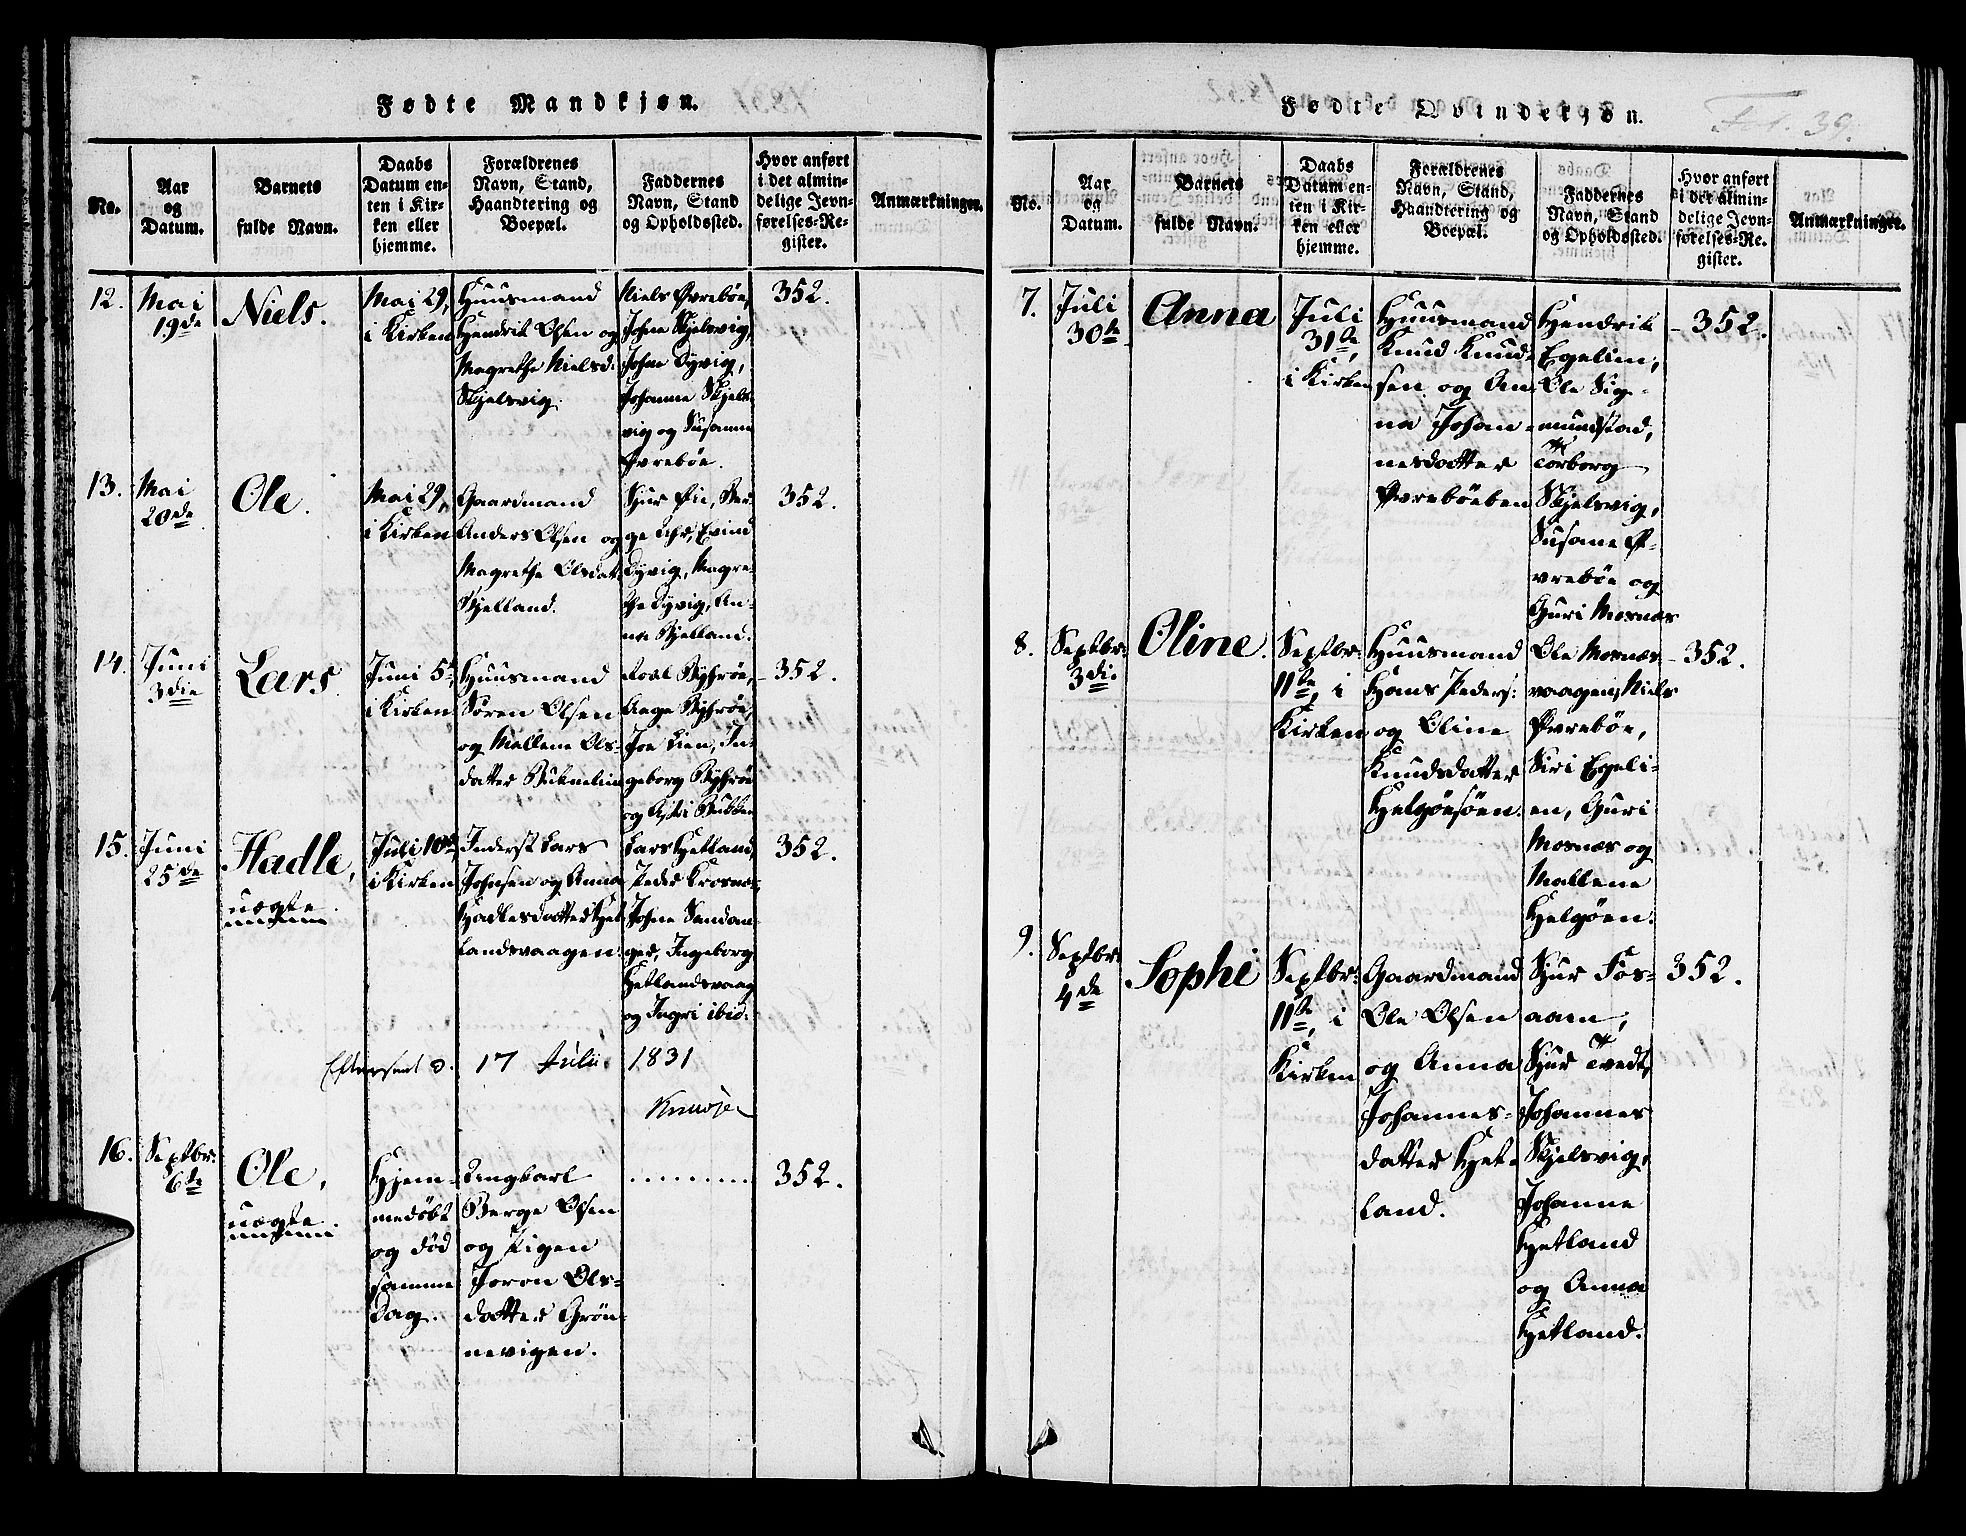 Fødte Mandkjøn.
No.
Aar
og
Datum.
Barnets
fulde Navn.
Daabs
Datum en-
ten i Kir-
ken eller
hjemme.
Forældrenes
Navn, Stand,
Haandtering og
Boepæl.
Faddernes
Navn, Stand
og Opholdssted.
Hvor anført
i det almin-
delige Jevn-
førelses-Re-
gister.
Anmærkninger.
12.
Mai
19de
Niels.
Mai 29,
i Kirken
Huusmand
Hendrik Olsen og
Magrethe Nielsd:
Skjelsvig.
Niels Øvrebøe,
Johne Skjelsvig,
Johne Dyvig,
Johanne Skjels-
vig og Susanne
Øvrebøe.
352.
13.
Mai
20de
Ole.
Mai 29,
i Kirken
Gaardmand
Anders Olsen og
Magrethe Olsdat:
Bjelland.
Sjur
Evind
Dyvig, Magre-
the Dyvig, An-
na Bjelland.
352.
14.
Juni
3die
Lars.
Juni 5te
i Kirken
Huusmand
Søren Olsen
og Mallene Ols-
datter
Aage
Joe Lien, In-
geborg
og
352.
15.
Juni
25de
Hadle,
uægte.
Juli 10de,
i Kirken
Inderst Lars
Johnsen og Anna
Hadlesdatter Het-
landsvaagen.
Lars Hetland,
Peder
Johne Sandan-
ger, Ingeborg
Hetlandsvaag
og Ingri ibid:
352.
Efterseet d. 17 Julii 1831
16.
Septbr:
6te
Ole,
uægte.
Hjem-
medøbt
og død
samme
Dag.
Ungkarl
Berge Olsen
og Pigen
Joron Ols-
datter Grøn-
nevigen.
..........
352.
Fødte Qvindekjøn.
Fol. 39.
No.
Aar
og
Datum.
Barnets
fulde Navn.
Daabs
Datum en-
ten i Kir-
ken eller
hjemme.
Forældrenes
Navn, Stand,
Haandtering og
Boepæl.
Faddernes
Navn, Stand
og Opholdssted.
Hvor anført
i det almin-
delige Jevn-
førelses-Re-
gister.
Anmærkninger.
7.
Juli
30te
Anna
Juli
31te,
i Kirken
Huusmand
Knud Knud-
sen og An-
na Johan-
nesdatter
Øvrebøeben
Hendrik
Egelien,
Ole Sig-
mundstad,
Torborg
Skjelsvig,
Susane Ø-
vrebøe og
Guri Mosnæs
352.
8.
Septbr:
3die
Oline.
Septbr:
11te, i
Kirken
Huusmand
Hans Peders:
og Oline
Knudsdatter
Helgøesøen.
Ole Mosnæs-
vaagen, Niels
Øvrebøe,
Siri Egeli-
en, Guri
Mosnæs og
Mallene
Helgøen.
352.
9.
Septbr:
4de
Sophi
Septbr:
11te, i
Kirken
Gaardmand
Ole Olsen
og Anna
Johannes-
datter Het-
land.
Sjur Fos-
aaen,
Sjur Tvedt,
Johannes
Skjelsvig,
Johanne
Hetland
og Anna
Hetland.
352.